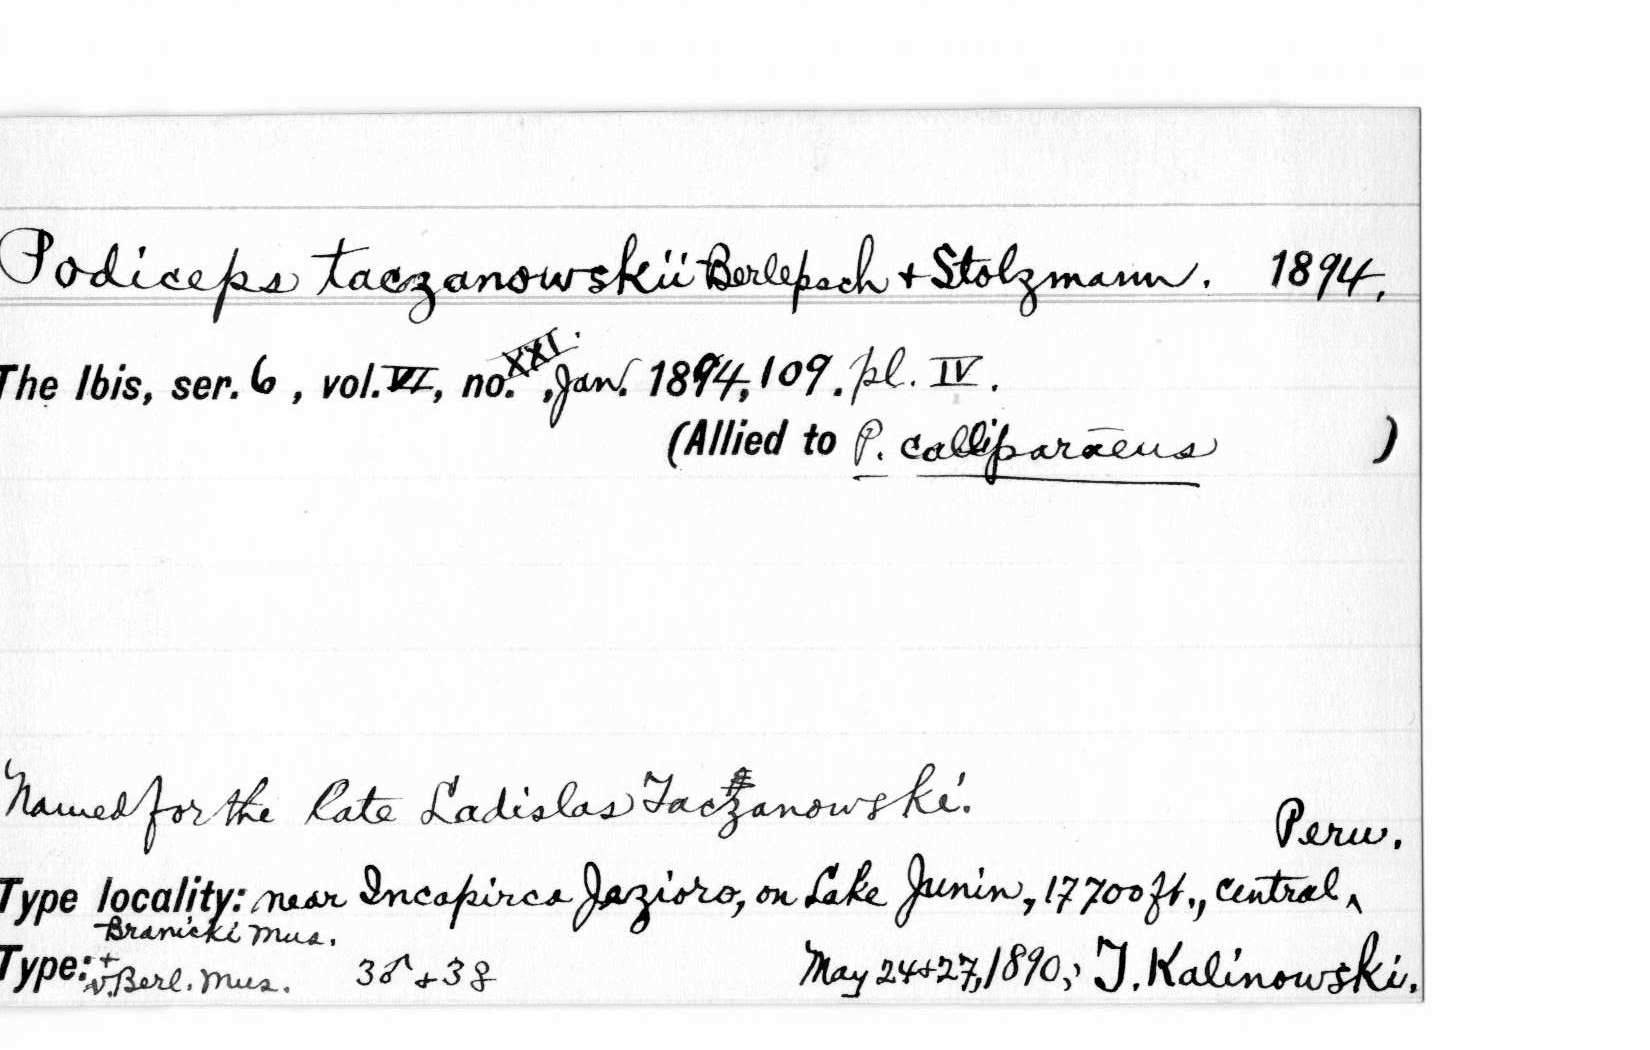 Podiceps taczanowskii Berlepsch + Stolzmann. 1894.
The Ibis, ser. 6, vol. VI, no. XXI., Jan. 1894, 109. pl. IV.
(Allied to P. calliparaeus )
Named for the late Ladislas Taczanowski.
Peru.
Type locality: near Incapirca Jazioro, on Lake Junin, 17700 ft., central ^
Branicki Mus.
Type: + v. Berl. Mus. 3♂ + 3♀ May 24+27, 1890; J. Kalinowski.